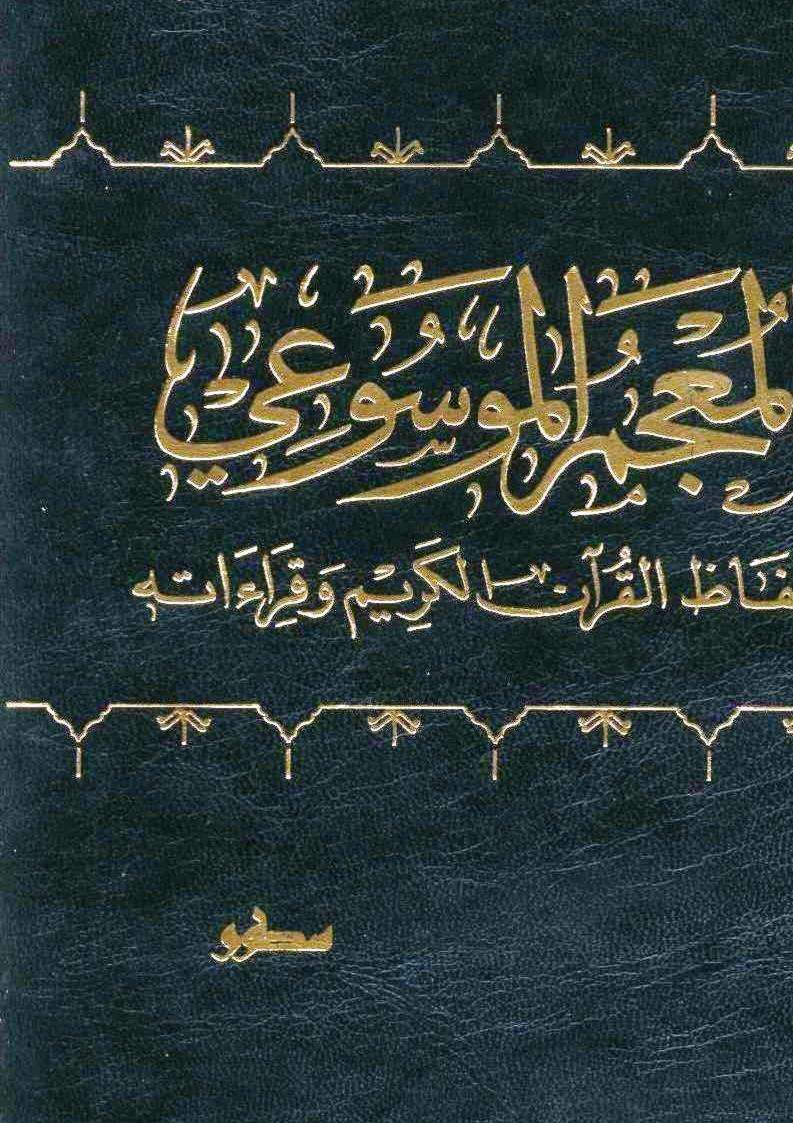 لمعجم الموسوعي
فاظ القرآن الكريم وقراءاته
سطور